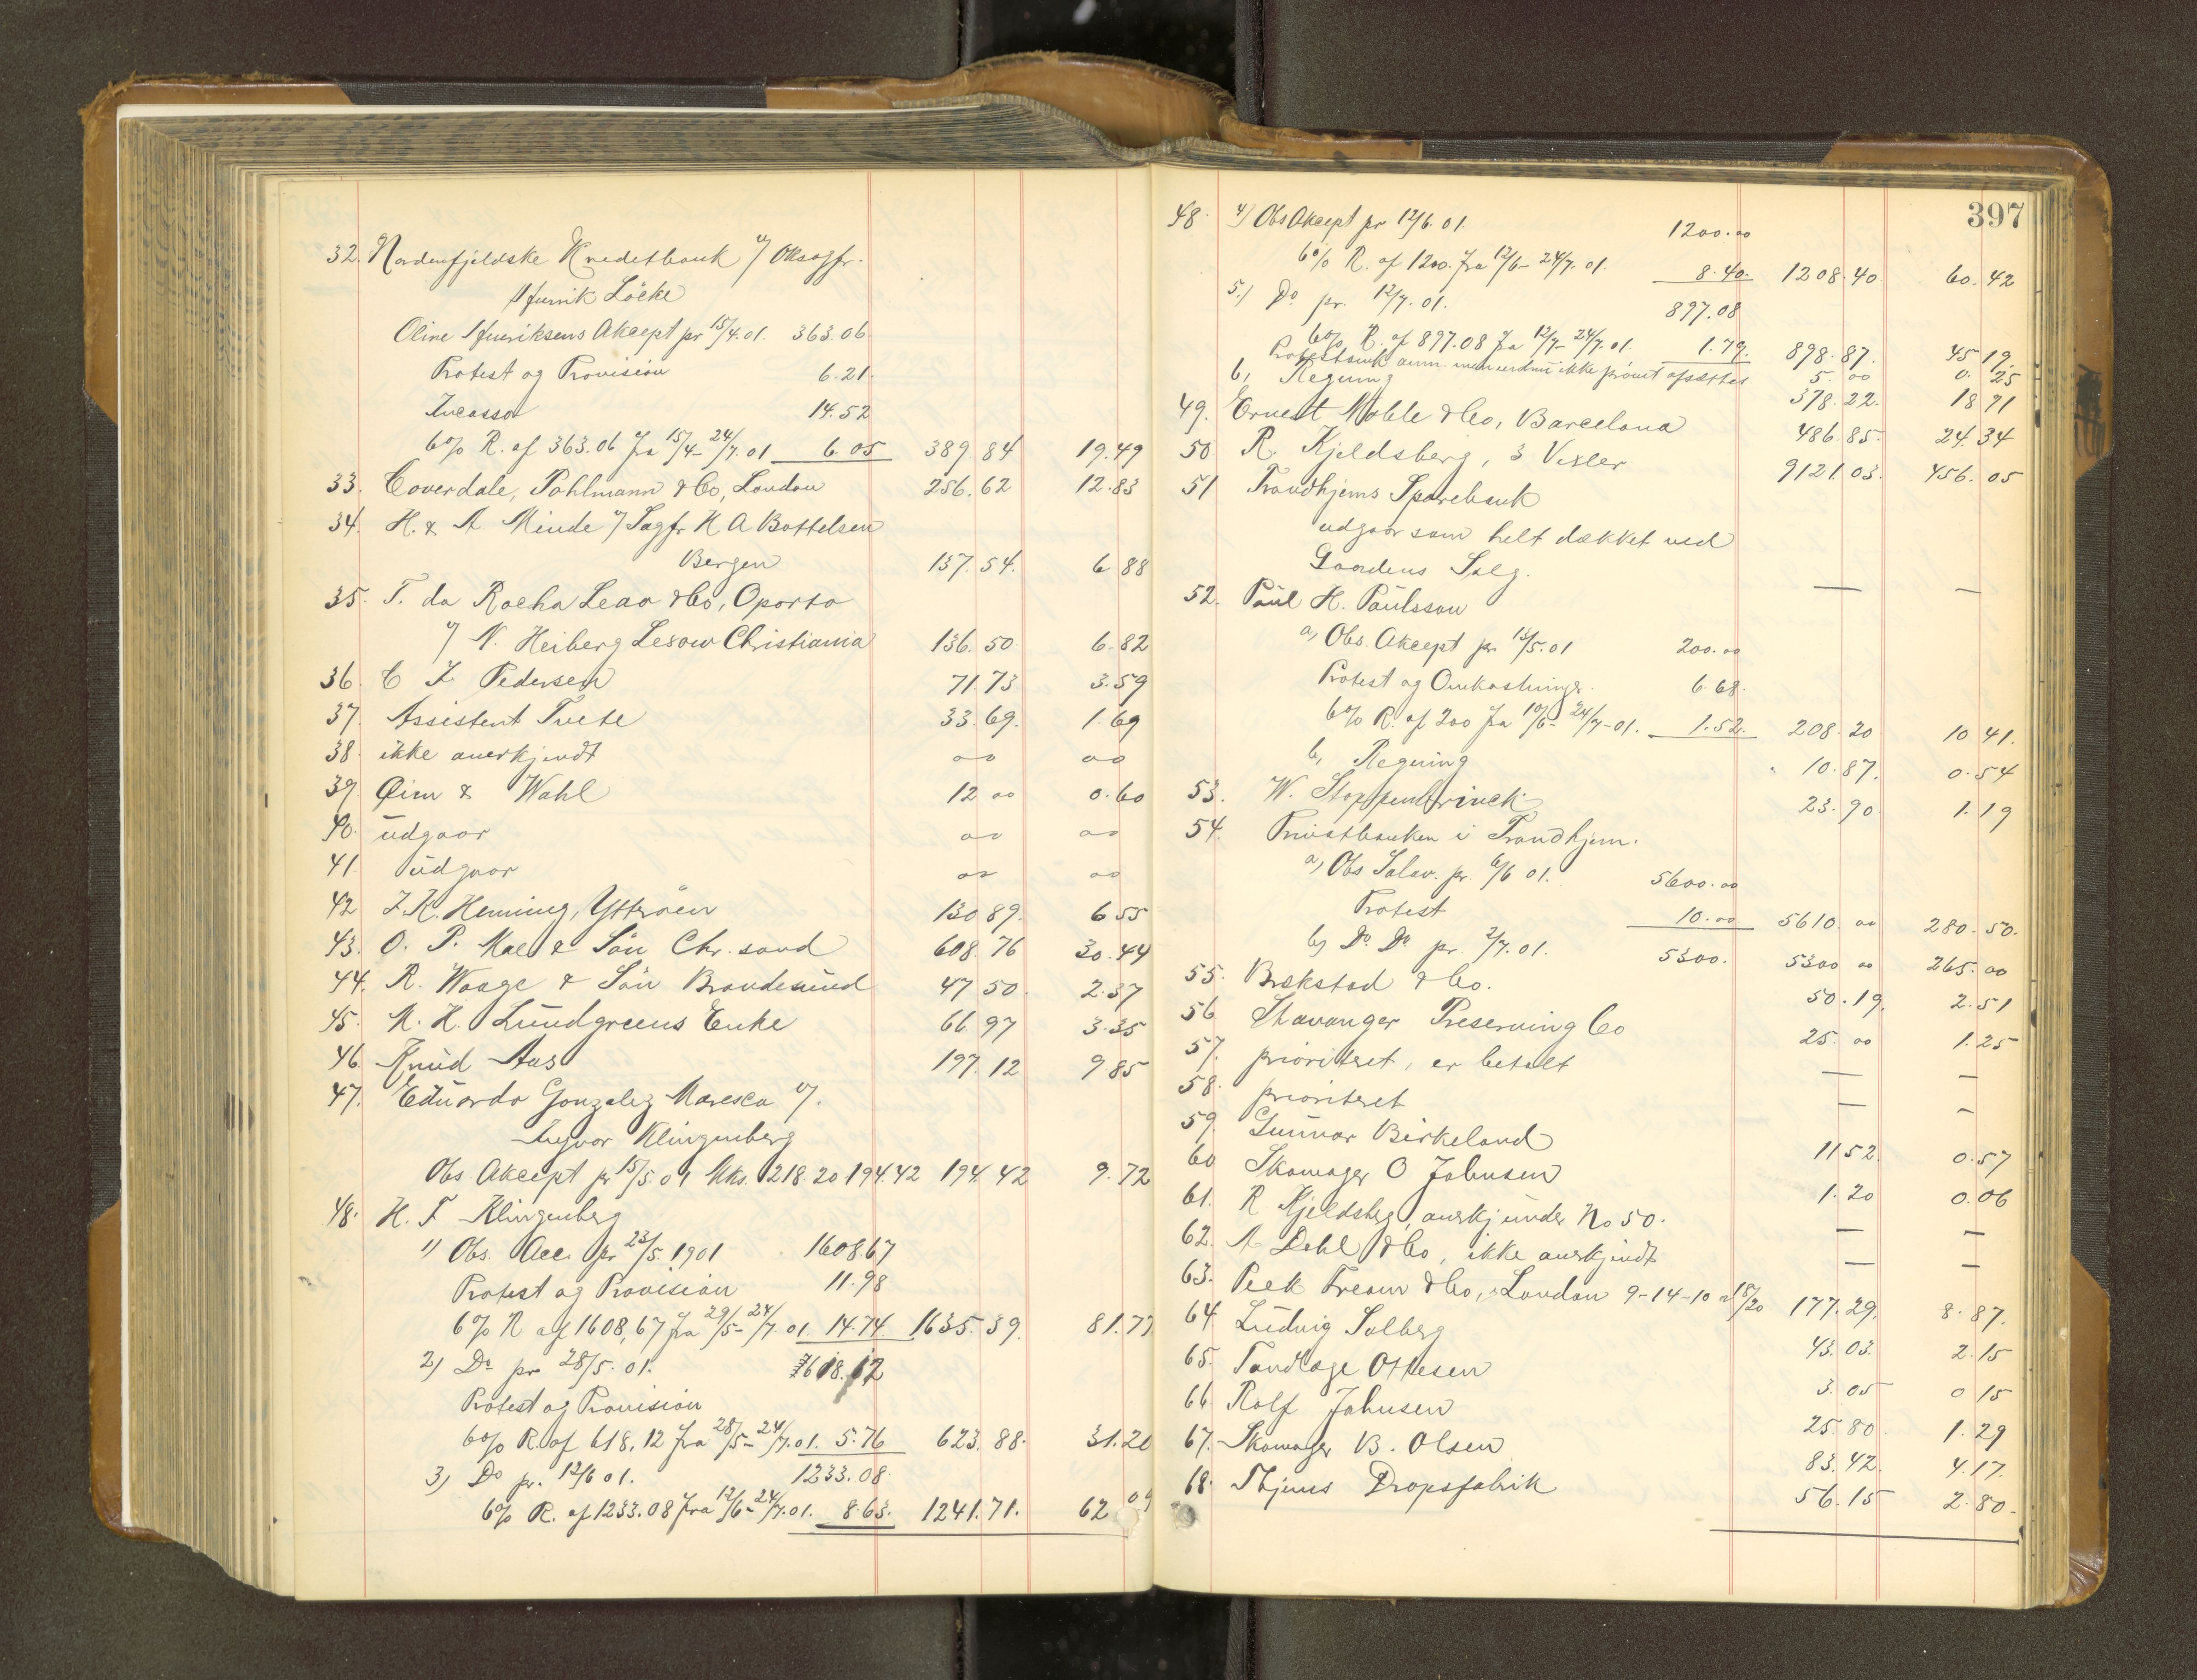 32. Nordenfjeldske Kreditbank v/ Oksagfr.
Henrik Löcke
Oline Henriksens Akcept pr 15/4.01. 363.06
Protest og Provision 6.21.
Incasso 14.52
6% R. af 363.06 fra 15/4-24/7.01 6.05 389 84 19.49
33. Coverdale, Pohlmann & Co, London 256.62 12.83
34. H. & A Minde v/ Sagfr K A Bottelsen
Bergen 137.54. 6 88
35. T. da Rocha Leao & Co, Oporto
v/ N. Heiberg Lesow Christiania 136.50 6.82
36. C Z. Pedersen 71.73 3.59
37. Assistent Tvete 33.69. 1.69
38. ikke anerkjendt oo oo
39. Öien & Wahl 12 oo 0.60
40. udgaar oo oo
41. udgaar oo oo
42 Z. K. Henning, Ytteröen 130 89. 6 55
43. O. P. Moe & Sön Chr. sand 608.76 30.44
44. R. Waage & Sön Brandesund 47 50 2.37
45. M. H. Lundgreens Enke 66.97 3.35
46. Knud Aas 197.12 9 85
47. Eduardo Gonzalez Maresca v/.
Ingvar Klingenberg
Obs. Akcept pr 15/5.01 Mks. 218.20 194.42 194.42 9.72
48. H. F Klingenberg
1) Obs. Acc. pr 23/5.1901 1608.67
Protest og Provision 11.98
6% R af 1608,67 fra 29/5-24/7.01. 14.74. 1635.39. 81.77
2) Do pr 28/5.01. 618.12
Protest og Provision
6% R. af 618,12 fra 28/5-24/7.01. 5.76 623.88. 31.20
3) Do pr. 12/6 01. 1233.08.
6% R. af 1233.08 fra 12/6-24/7.01. 8.63. 1241.71. 62 09
397
48. 4) Obs Akcept pr 12/6.01. 1200.oo
6% R. af 1200. fra 12/6-24/7.01. 8.40. 1208.40 60.42
5.) Do pr. 12/7.01. 897.08
6% R. af 897.08 fra 12/7-24/7.01. 1.79. 898.87. 45 19.
Protestomk anm. men endnu ikke prövet afsættes 5.oo 0.25
6, Regning 378.22. 18 91
49. Ernest Noble & Co, Barcelona 486.85. 24.34
50 R. Kjeldsberg, 3 Vexler 9121.03. 456.05
51 Trondhjems Sparebank
udgaar som helt dækket ved
Gaardens Salg. — —
52. Paul H. Paulsson
a, Obs. Akcept pr. 13/5.01 200.oo
Protest og Omkostninger. 6.68.
6% R. af 200 fra 10/6-24/7-01. 1.52. 208.20 10 41.
b, Regning 10.87. 0.54
53. W. Stoppenbrinck 23.90 1.19
54. Privatbanken i Trondhjem.
a, Obs Solav. pr. 6/6 01. 5600.oo
Protest 10.oo 5610.oo 280.50.
b) Do. Do pr. 2/7.01. 5300. 5300 oo 265.oo
55. Brækstad & Co. 50.19. 2.51
56 Stavanger Preserving Co 25.oo 1.25
57. prioriteret, er betalt — —
58. prioriteret — —
59. Gunnar Birkeland 11 52. 0.57
60 Skomager O Johnsen 1.20 0.06
61. R. Kjeldsberg, anerkj under No 50. — —
62. A Dahl & Co, ikke anerkjendt — —
63. Peek Frean & Co, London 9-14-10 a 18/20 177.29. 8.87.
64. Ludvig Solberg 43.03. 2.15
65. Tandlæge Ottesen 3.05 0 15
66 Rolf Johnsen 25.80 1.29
67. Skomager B. Olsen 83.42. 4.17.
68. Thjems Dropsfabrik 56.15 2.80.